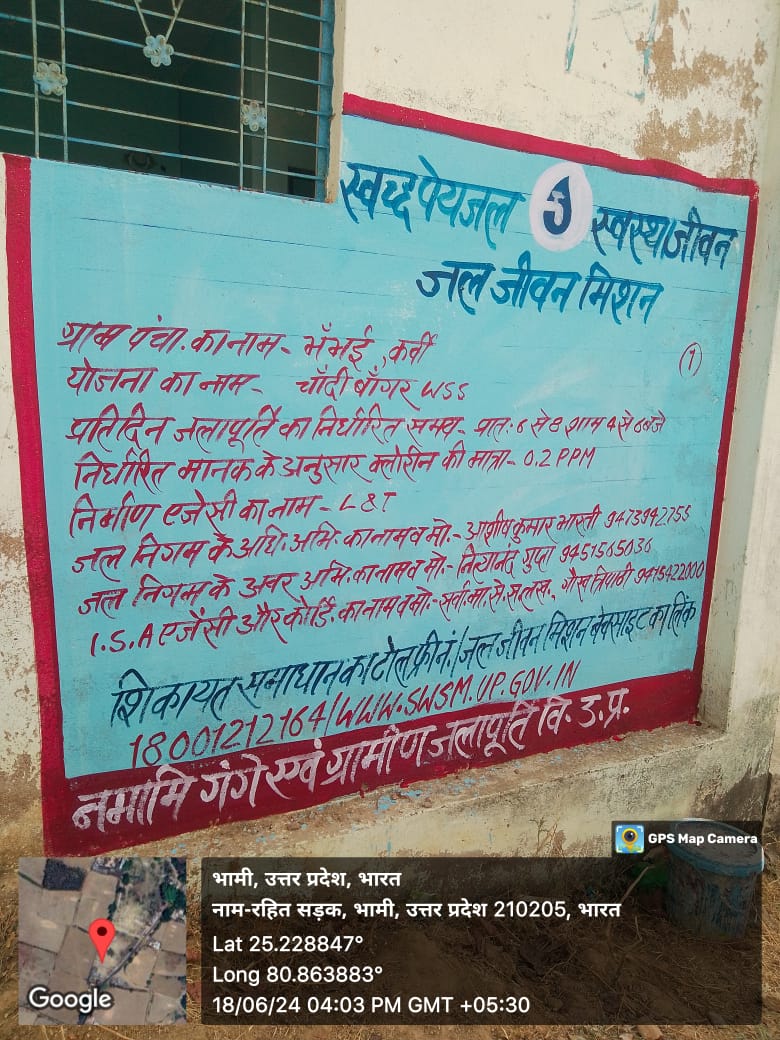 स्वच्छ पेयजल स्वस्थ जीवन
जल जीवन मिशन
(1)
ग्राम पंचा. का नाम - भँभई, कर्वी
योजना का नाम - चाँदी बाँगर WSS
प्रतिदिन जलापूर्ति का निर्धारित समय - प्रात: 6 से 8 शाम 4 से 6 बजे
निर्धारित मानक के अनुसार क्लोरीन की मात्रा - 0.2 PPM
निर्माण एजेंसी का नाम - L&T
जल निगम के अधि. अभि. का नाम व मो. - आशीष कुमार भारती 9473942755
जल निगम के अवर अभि. का नाम व मो. - नित्यानंद गुप्ता 9451565036
I.S.A एजेंसी और कोर्डि. का नाम व मो. - त्रिपाठी 9415422000
शिकायत समाधान का टोल फ्री नं./जल जीवन मिशन बेवसाइट का लिंक
18001212164/WWW.SWSM.UP.GOV.IN
नमामि गंगे एवं ग्रामीण जलापूर्ति वि. उ.प्र.
GPS Map Camera
भामी, उत्तर प्रदेश, भारत
नाम-रहित सड़क, भामी, उत्तर प्रदेश 210205, भारत
Lat 25.228847°
Long 80.863883°
18/06/24 04:03 PM GMT +05:30
Google